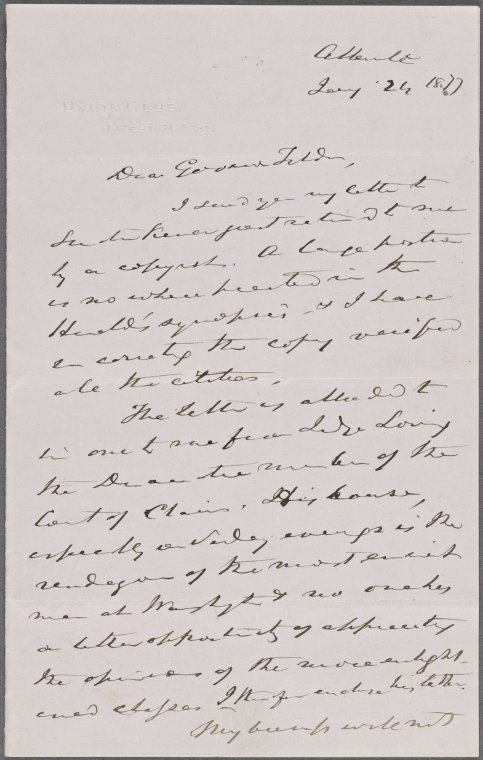 UNION CLUB
Jany 24 1877
Dear Governor Tilden,
I send you my letter to
Senator Kernan just returned to me
by a copyist. A large portion
is no where printed in the
Herald's synopsis & I have
in correcting the copy verified
all the citations.
The letter is alluded to
in one to me from Judge Loring
the Democratic member of the
Court of Claims. His house,
especially on Sunday evenings is the
rendezvous of the most eminent
men at Washington & no one has
a better opportunity of appreciating
the opinions of the more enlight-
ened classes I therefore enclose his letter.
My business will not